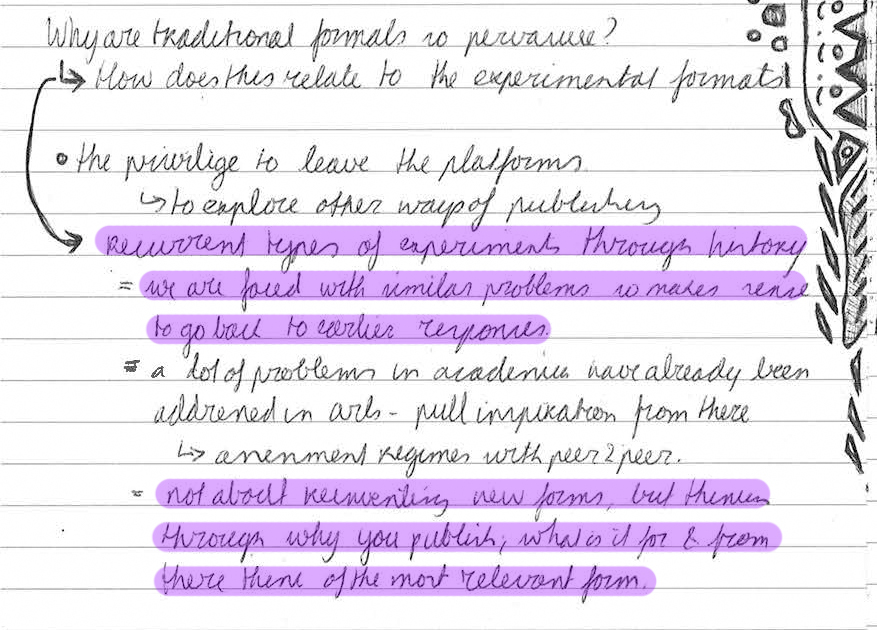 Why are traditional formats so pervasive?
↳ How does this relate to the experimental formats
• the privilige to leave the platforms
↳ to explore other ways of publishing
recurrent types of experiments through history
= we are faced with similar problems so makes sense
to go back to earlier responses.
= a lot of problems in academia have already been
addressed in arts - pull inspiration from there
↳ assessment regimes with peer2peer.
= not about reinventing new forms, but thinking
through why you publish, what is it for & from
there think of the most relevant form.